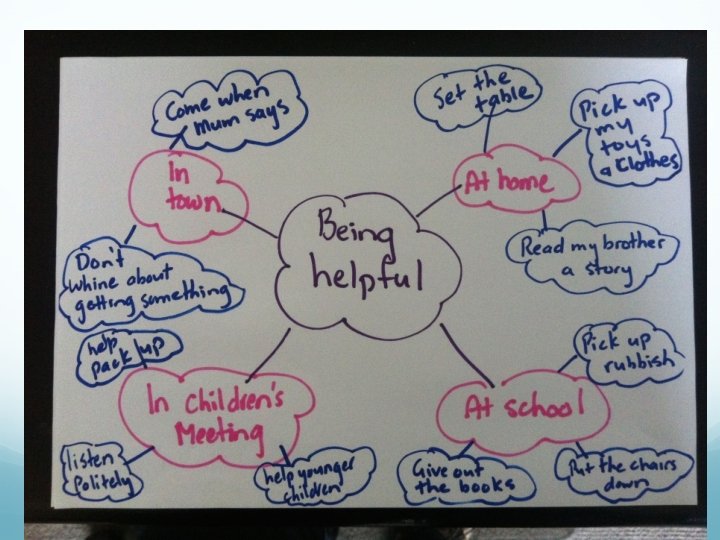 Come when
Mum says
In
town
Don't
whine about
getting something
Set the
table
Pick up
my
toys
& Clothes
At home
Read my brother
a story
Being
helpful
help
pack up
In Children's
Meeting
listen
Politely
help younger
children
Pick up
rubbish
At school
Give out
the books
Put the chairs
down